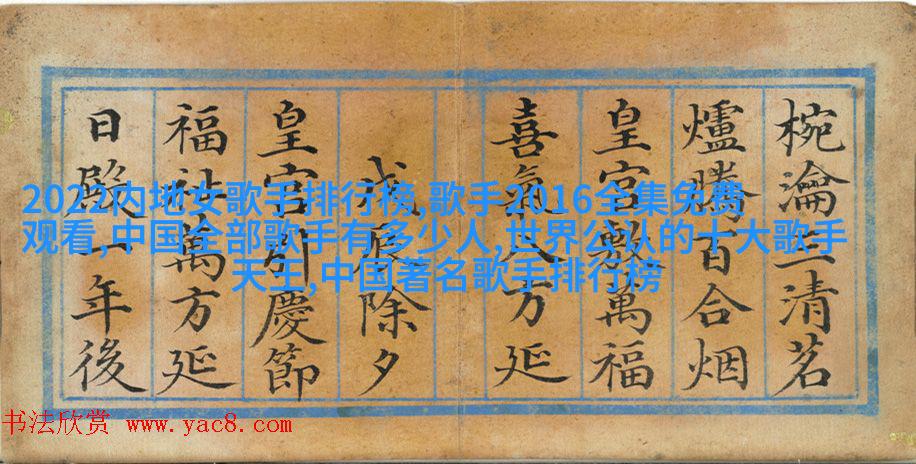 椀瀹三清茗
爐騰百合烟
皇宮敷萬福
喜氣八方延
戊辰除夕
皇宮引慶節
福祉萬方延
日一年後
2022内地女歌手排行榜,歌手2016全集免费
观看,中国全部歌手有多少人,世界公认的十大歌手
天王,中国著名歌手排行榜
书法欣赏 www.yac8.com